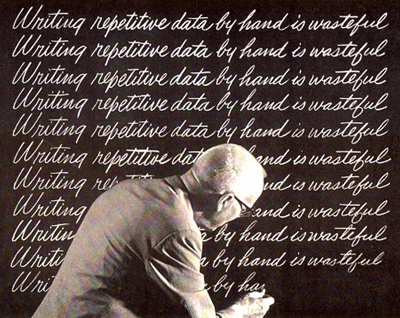 Writing repetitive data by hand is wasteful
Writing repetitive data by hand is wasteful
Writing repetitive data by hand is wasteful
Writing repetitive data by hand is wasteful
Writing repetitive data by hand is wasteful
Writing repetitive data hand is wasteful
Writing repetit hand is wasteful
Writing and is wasteful
Writing by hand is wasteful
Writing a by hand is wasteful
Wri by han